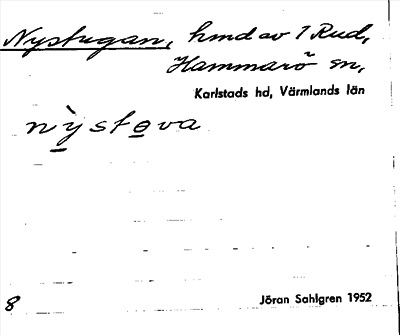 Nystugan, hmd av 1 Rud,
Hammarö sn,
Karlstads hd, Värmlands län
nỳstova
8
Jöran Sahlgren 1952